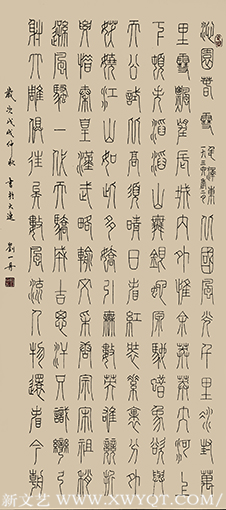 沁園春雪 毛澤東
一九三六年二月
北國風光千里冰封萬
里雪飄望長城內外惟余莽莽大河上
下頓失滔滔山舞銀蛇原馳蠟象欲與
天公試比高須晴日看紅裝素裹分外
妖嬈江山如此多嬌引無數英雄競折
腰惜秦皇漢武略輸文采唐宗宋祖稍
遜風騷一代天驕成吉思汗只識彎弓
射大雕俱往矣數風流人物還看今朝
歲次戊戌仲秋書於大連 劉一
新文艺（WWW.XWYQT.COM/